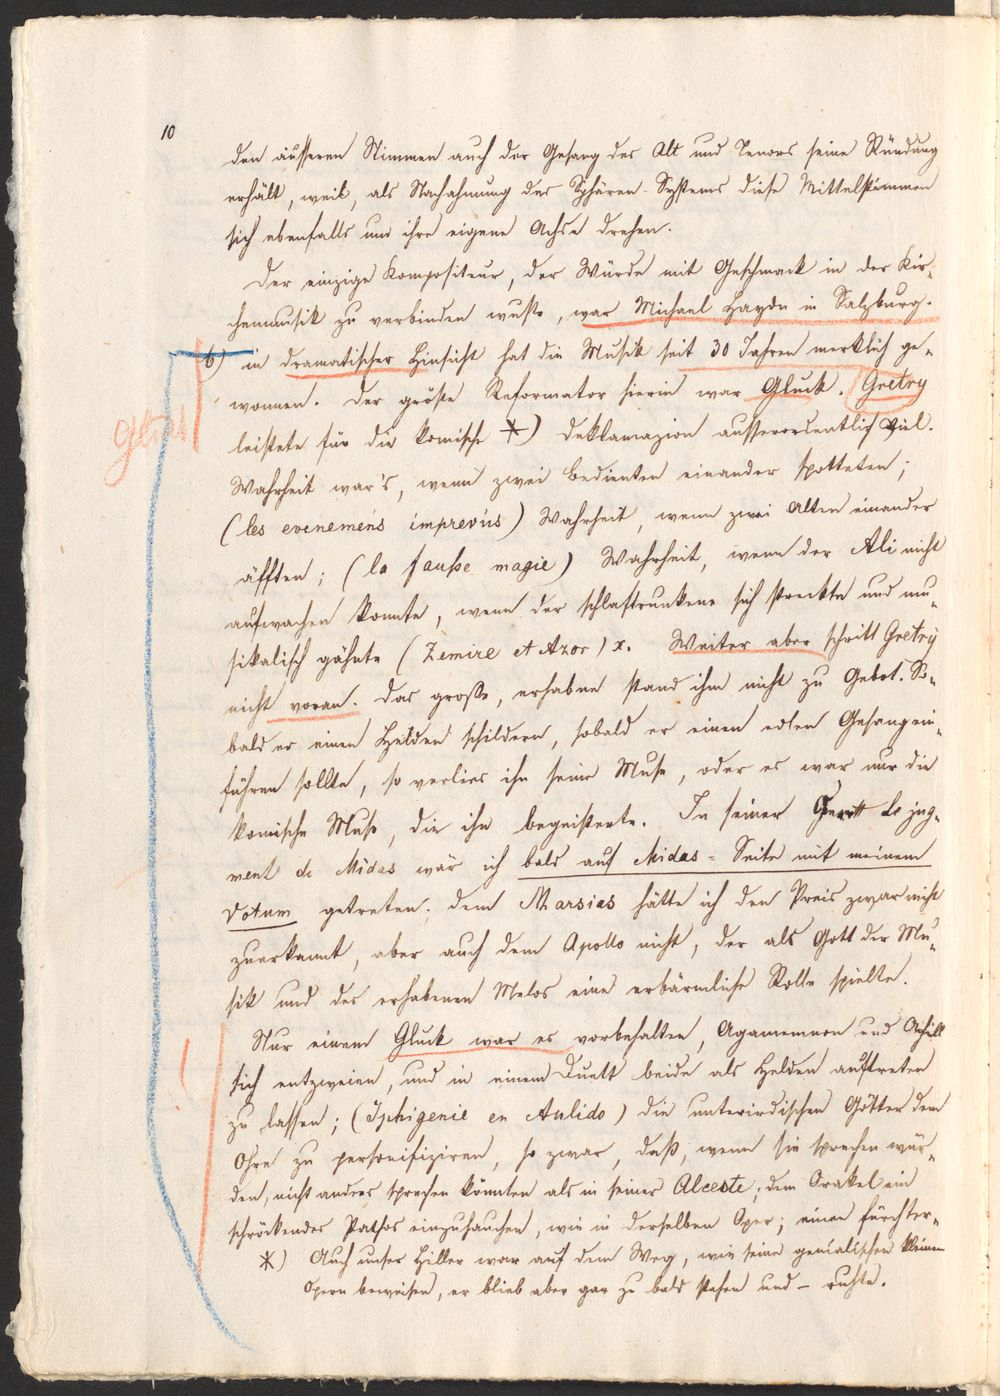 10
den äusseren Stimmen auch der Gesang des Alt und Tenors seine Ründung
erhält, weil, als Nachahmung des Sphären-Systems diese Mittelstimmen
sich ebenfalls um ihre eigene Achse drehen.
Der einzige Kompositeur, der Würde mit Geschmack in der Kir-
chenmusik zu verbinden wuste, war Michael Haydn in Salzburg.
b) in dramatischer Hinsicht hat die Musik seit 30 Jahren merklich ge-
wonnen. Der gröste Reformator hierin war Gluck. Gretry
leistete für die komische *) Deklamazion ausserordentlich viel.
Wahrheit war's, wenn zwei Bedienten einander spotteten;
(les evenemens imprevûs) Wahrheit, wenn zwei Alten einander
äfften; (la fauße magie) Wahrheit, wenn der Ali nicht
aufwachen konnte, wenn der schlaftrunkene sich streckte und mu-
sikalisch gähnte (Zemire et Azor) x. Weiter aber schritt Gretry
nicht voran. Das große, erhabne stand ihm nicht zu Gebot. So-
bald er einen Helden schildern, sobald er einen edlen Gesang ein-
führen sollte, so verlies ihn seine Muse, oder es war nur die
komische Muse, die ihn begeisterte. In seiner le jug-
ment de Midas wär ich bald auf Midas-Seite mit meinem
Votum getreten; dem Marsias hätte ich den Preis zwar nicht
zuerkannt, aber auch dem Apollo nicht, der als Gott der Mu-
sik und des erhabenen Melos eine erbärmliche Rolle spielte.
Nur einem Gluck war es vorbehalten, Agamemnon und Achill
sich entzweien, und in einem Duett beide als Helden auftreten
zu lassen; (Iphigenie en Aulido) die unterirdischen Götter dem
Ohre zu personifiziren, so zwar, daß, wenn sie sprechen wür-
den, nicht anders sprechen könnten als in seiner Alceste; dem Orakel ein
schröckendes Pathos einzuhauchen, wie in derselben Oper; einen fürchter-
*) Auch unser Hiller war auf dem Weg, wie seine genialischen kleinen
Opern beweisen, er blieb aber gar zu bald stehen und – ruhte.